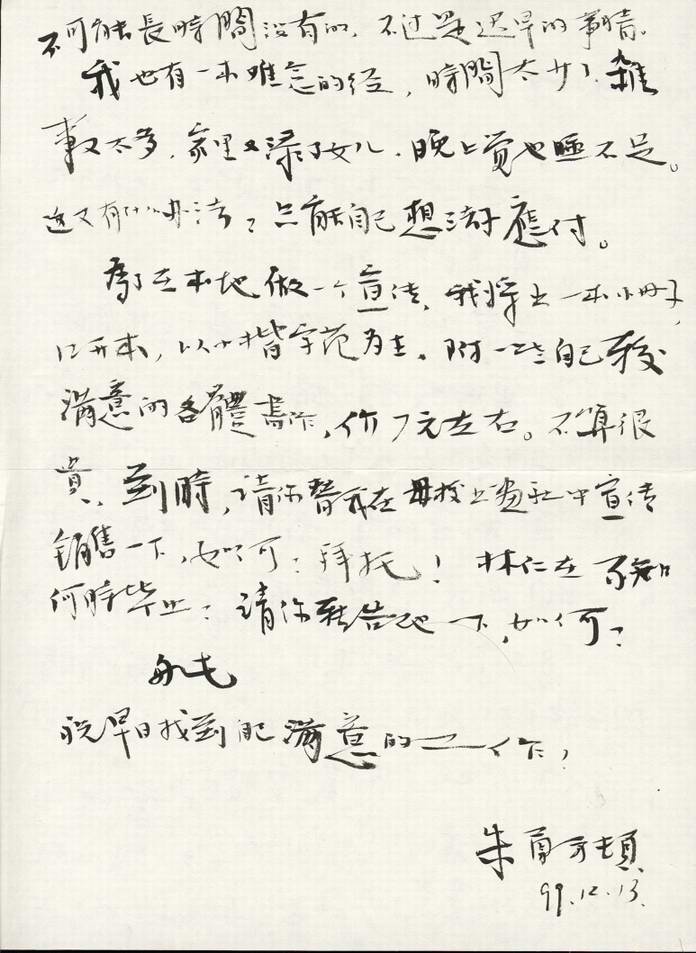 不可能長時間没有的，不过是迟早的事情。
我也有一本难念的经，時間太少，雜
事又太多，家里又添了女儿，晚上觉也睡不足。
这又有什么办法？只能自己想法子應付。
为了在本地做一个宣传，我将出一本小册子，
开本，以小楷字范为主。附一些自己较
满意的各體書作，价7元左右。不算很
貴，到時，請你替我在母校书画社中宣传
销售一下，如何？拜托！林仁在不知
何時毕业？請你転告他一下，如何？
祝早日找到滿意的工作，
朱勇方頓
99.12.13.